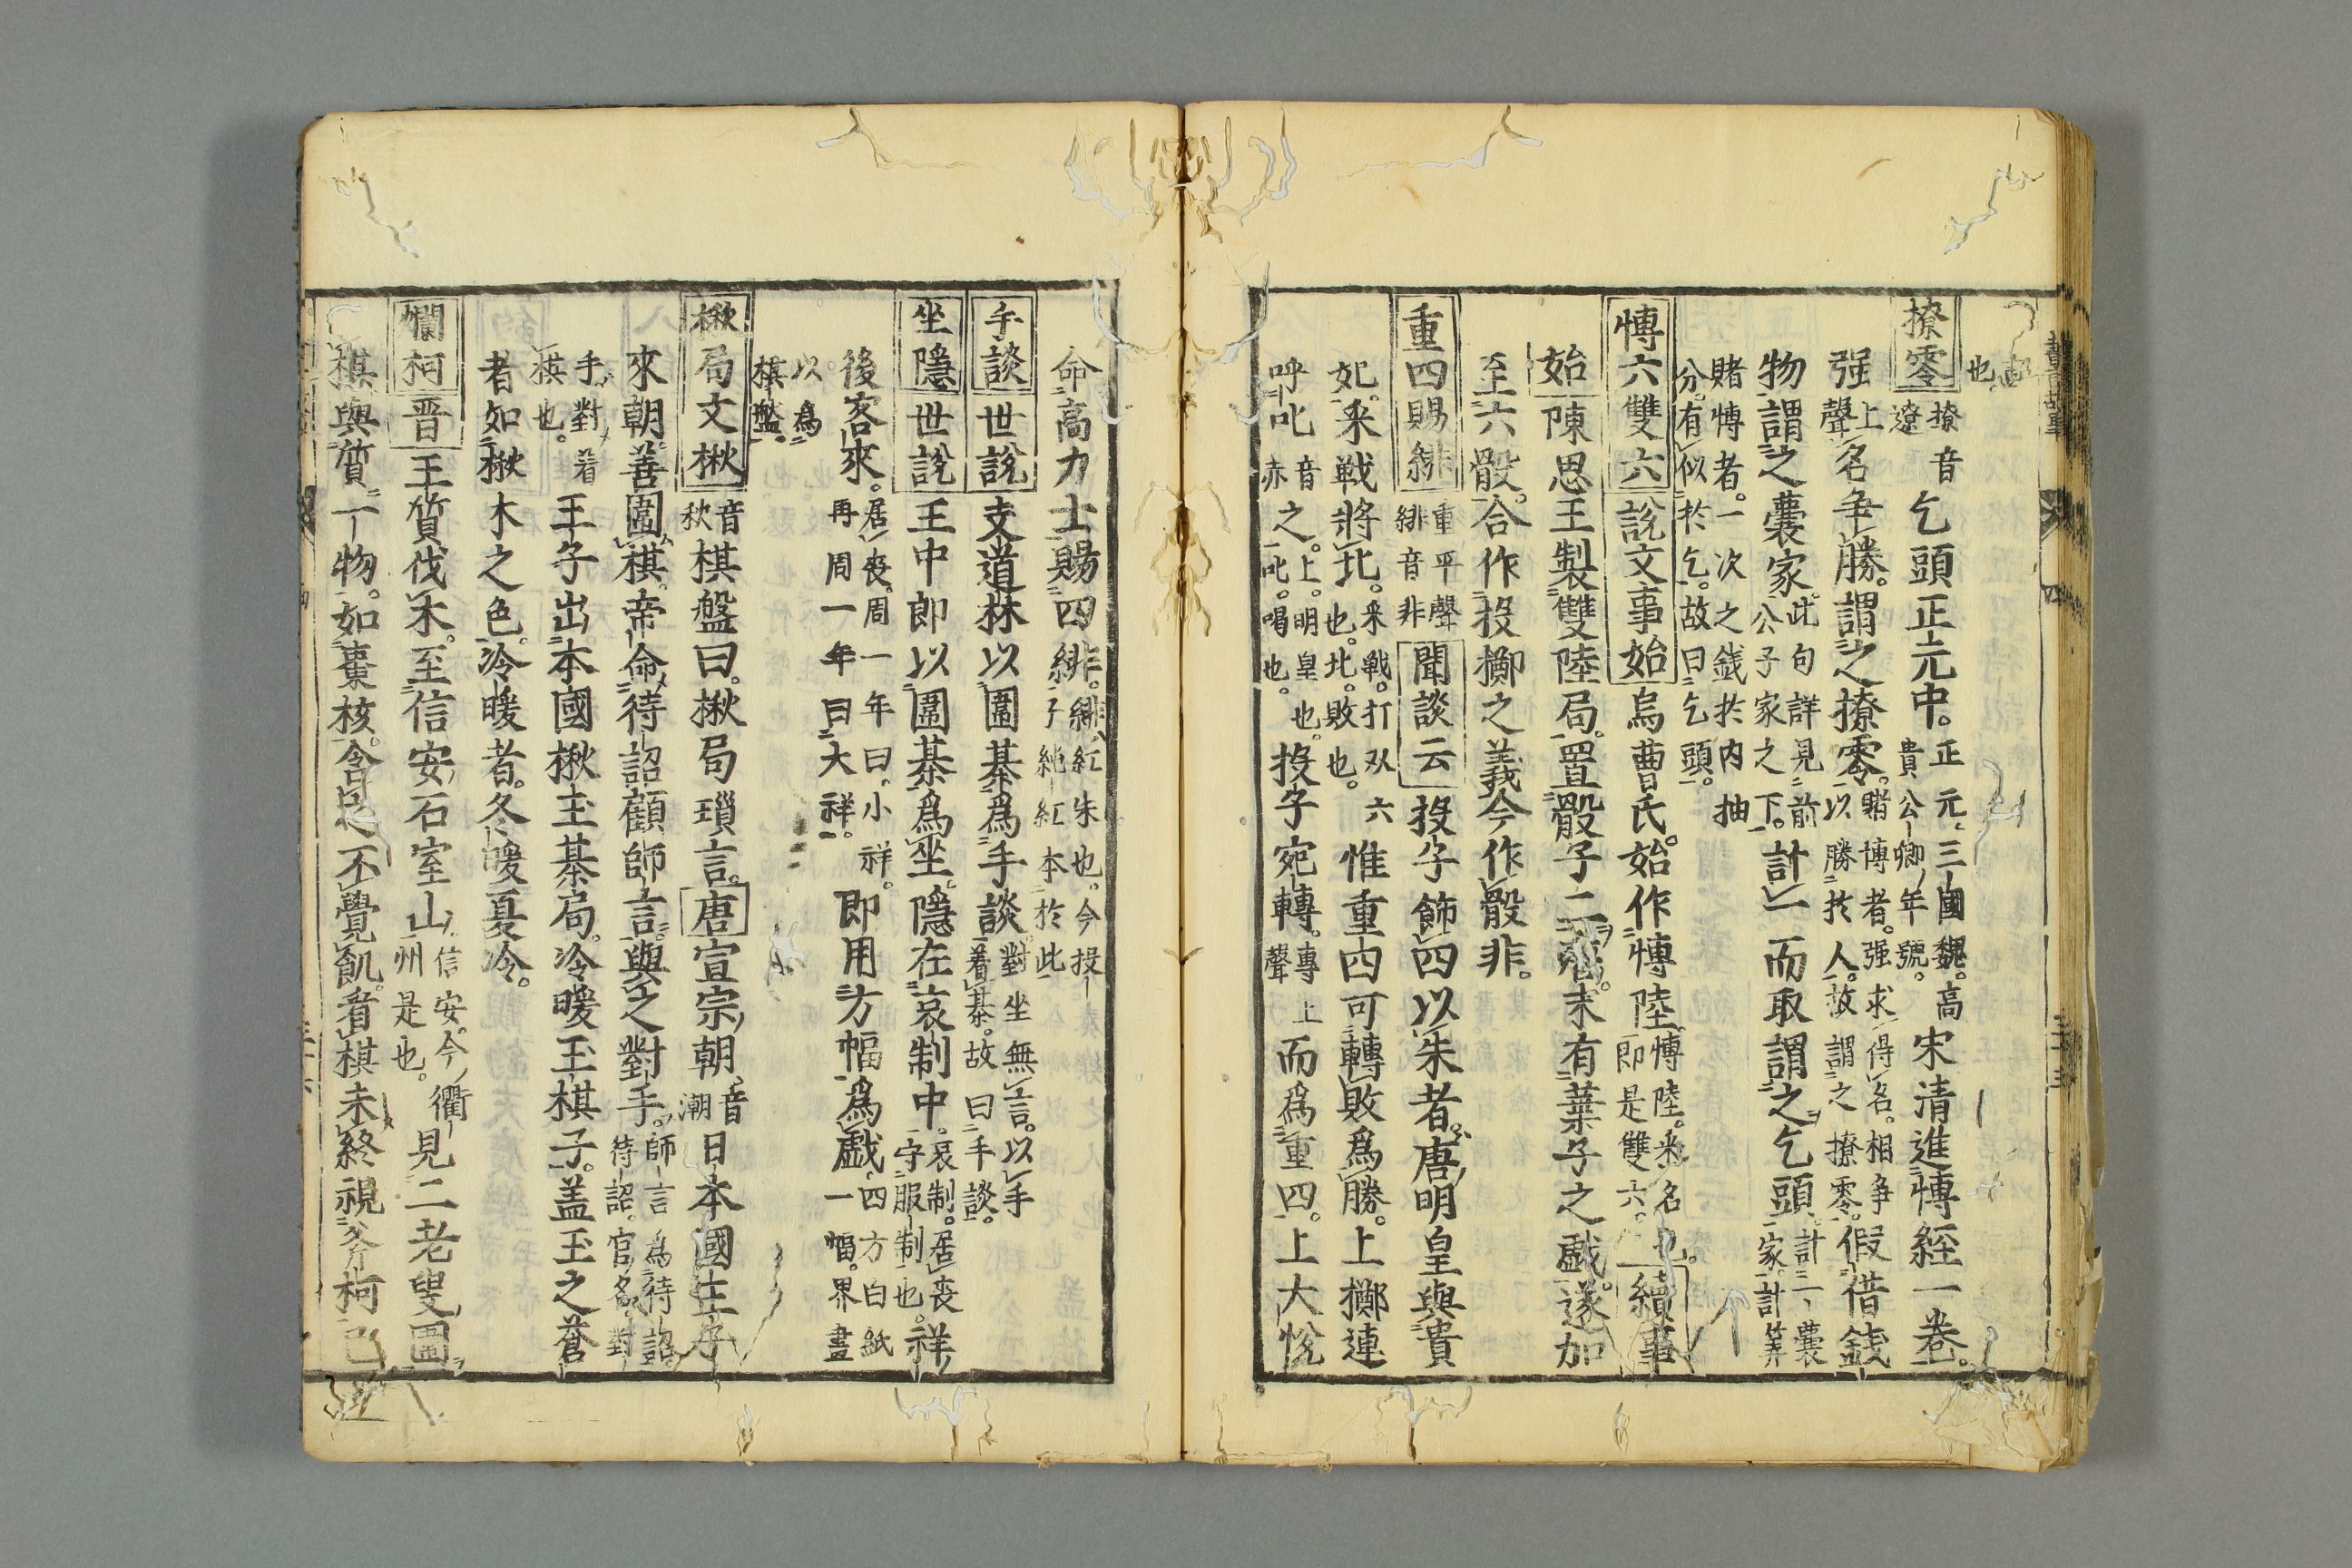 也
撩零 撩音遼 乞頭正元中。正元三國魏。高貴公卿年號。宋清進慱經一卷。
强上聲名争勝。謂之撩零。賭博者。强求得名。相争以勝扵人。故謂之撩零。假借錢
物謂之囊家。此句詳見前公子家之下。計一而取謂之乞頭。計一囊家計筭
賭慱者。一次之錢扵内抽分。有似扵乞。故曰乞頭。
慱六雙六 說文事始 烏曹氏。始作慱陸。慱陸。采名也。即是雙六。續事
始 陳思王製雙陸局。置骰子二。末有葉子之戯。遂加
至六骰。合作投擲之義今作骰非。
重四賜緋 重平聲緋音非 聞談云 投子飾四以朱者。唐明皇與貴
妃。采戦將北。采戦。打双六也。北。敗也。惟重四可轉敗爲勝。上擲連
呼叱音赤之。上。明皇也。叱。喝也。投子宛轉。專上聲而爲重四。上大悅
命高力士賜四緋。緋紅朱也。今投子純紅本於此
手談 世說 支道林以圍棊爲手談。對坐無言。以手着棊。故曰手談。
坐隱 世說 王中郎以圍棊爲坐隱在哀制中。哀制。居喪守服制也。祥
後客來。居喪。周一年曰。小祥。再周一年曰大祥。即用方幅爲戯。四方白紙一幅。界畫
以爲棋盤。
楸局文楸 音秋棋盤曰。楸局瑣言。唐宣宗朝音潮日本國王子
來朝。善圍棋。帝命待詔顧師言。與之對手。師言爲待詔待詔。官名。對
手。對着棋也。王子出本國楸玉棊局。冷暖玉棋子。盖玉之蒼
者如楸木之色。冷暖者。冬暖夏冷。
爛柯 晋 王質伐木。至信安石室山信安。今衢州是也。見二老叟圍
棋與質一物。如棗核。含之不覺飢。看棋未終視斧柯已